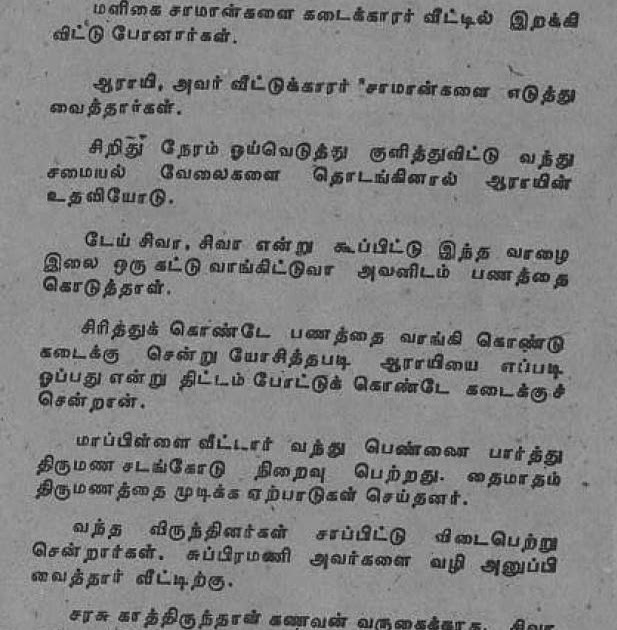 மளிகை சாமான்களை கடைக்காரர் வீட்டில் இறக்கி
விட்டு போனார்கள்.
ஆராயி, அவர் வீட்டுக்காரர் சாமான்களை எடுத்து
வைத்தார்கள்.
சிறிது நேரம் ஓய்வெடுத்து குளித்துவிட்டு வந்து
சமையல் வேலைகளை தொடங்கினாள் ஆராயின்
உதவியோடு.
டேய் சிவா, சிவா என்று கூப்பிட்டு இந்த வாழை
இலை ஒரு கட்டு வாங்கிட்டுவா அவனிடம் பணத்தை
கொடுத்தாள்.
சிரித்துக் கொண்டே பணத்தை வாங்கி கொண்டு
கடைக்கு சென்று யோசித்தபடி ஆராயியை எப்படி
ஓப்பது என்று திட்டம் போட்டுக் கொண்டே கடைக்குச்
சென்றான்.
மாப்பிள்ளை வீட்டார் வந்து பெண்ணை பார்த்து
திருமண சடங்கோடு நிறைவு பெற்றது. தைமாதம்
திருமணத்தை முடிக்க ஏற்பாடுகள் செய்தனர்.
வந்த விருந்தினர்கள் சாப்பிட்டு விடைபெற்று
சென்றார்கள். சுப்பிரமணி அவர்களை வழி அனுப்பி
வைத்தார் வீட்டிற்கு.
சரசு காத்திருந்தாள் கணவன் வருகைக்காக. சிவா